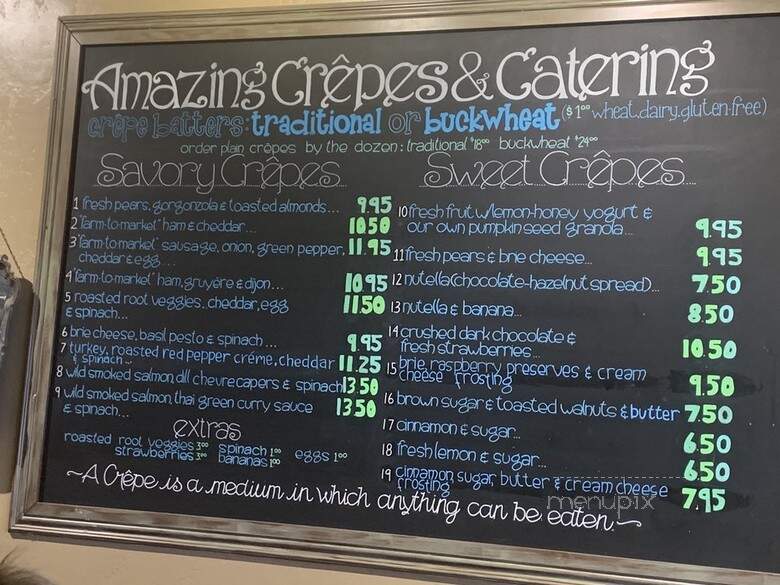 Amazing Crêpes & Catering
crêpe batters: traditional or buckwheat ($1⁰⁰ wheat, dairy, gluten-free)
order plain crêpes by the dozen: traditional $18⁰⁰ buckwheat $24⁰⁰
Savory Crêpes
1 fresh pears, gorgonzola & toasted almonds... 9.95
2 "farm-to-market" ham & cheddar... 10.50
3 "farm-to-market" sausage, onion, green pepper, 11.95
cheddar & egg...
4 "farm-to-market" ham, gruyére & dijon... 10.95
5 roasted root veggies, cheddar, egg 11.50
& spinach...
6 brie cheese, basil pesto & spinach... 9.95
7 turkey, roasted red pepper créme, cheddar 11.25
& spinach...
8 wild smoked salmon, dill chevre capers & spinach 13.50
9 wild smoked salmon, thai green curry sauce 13.50
& spinach...
extras
roasted root veggies 3⁰⁰ spinach 1⁰⁰ eggs 1⁰⁰
strawberries 3⁰⁰ bananas 1⁰⁰
Sweet Crêpes
10 fresh fruit w/lemon-honey yogurt &
our own pumpkin seed granola... 9.95
11 fresh pears & brie cheese... 9.95
12 nutella (chocolate-hazelnut spread)... 7.50
13 nutella & banana... 8.50
14 crushed dark chocolate &
fresh strawberries... 10.50
15 brie, raspberry preserves & cream
cheese frosting 9.50
16 brown sugar & toasted walnuts & butter 7.50
17 cinnamon & sugar... 6.50
18 fresh lemon & sugar... 6.50
19 cinnamon, sugar, butter & cream cheese
frosting 7.95
~A Crêpe is a medium in which anything can be eaten.~
menupix